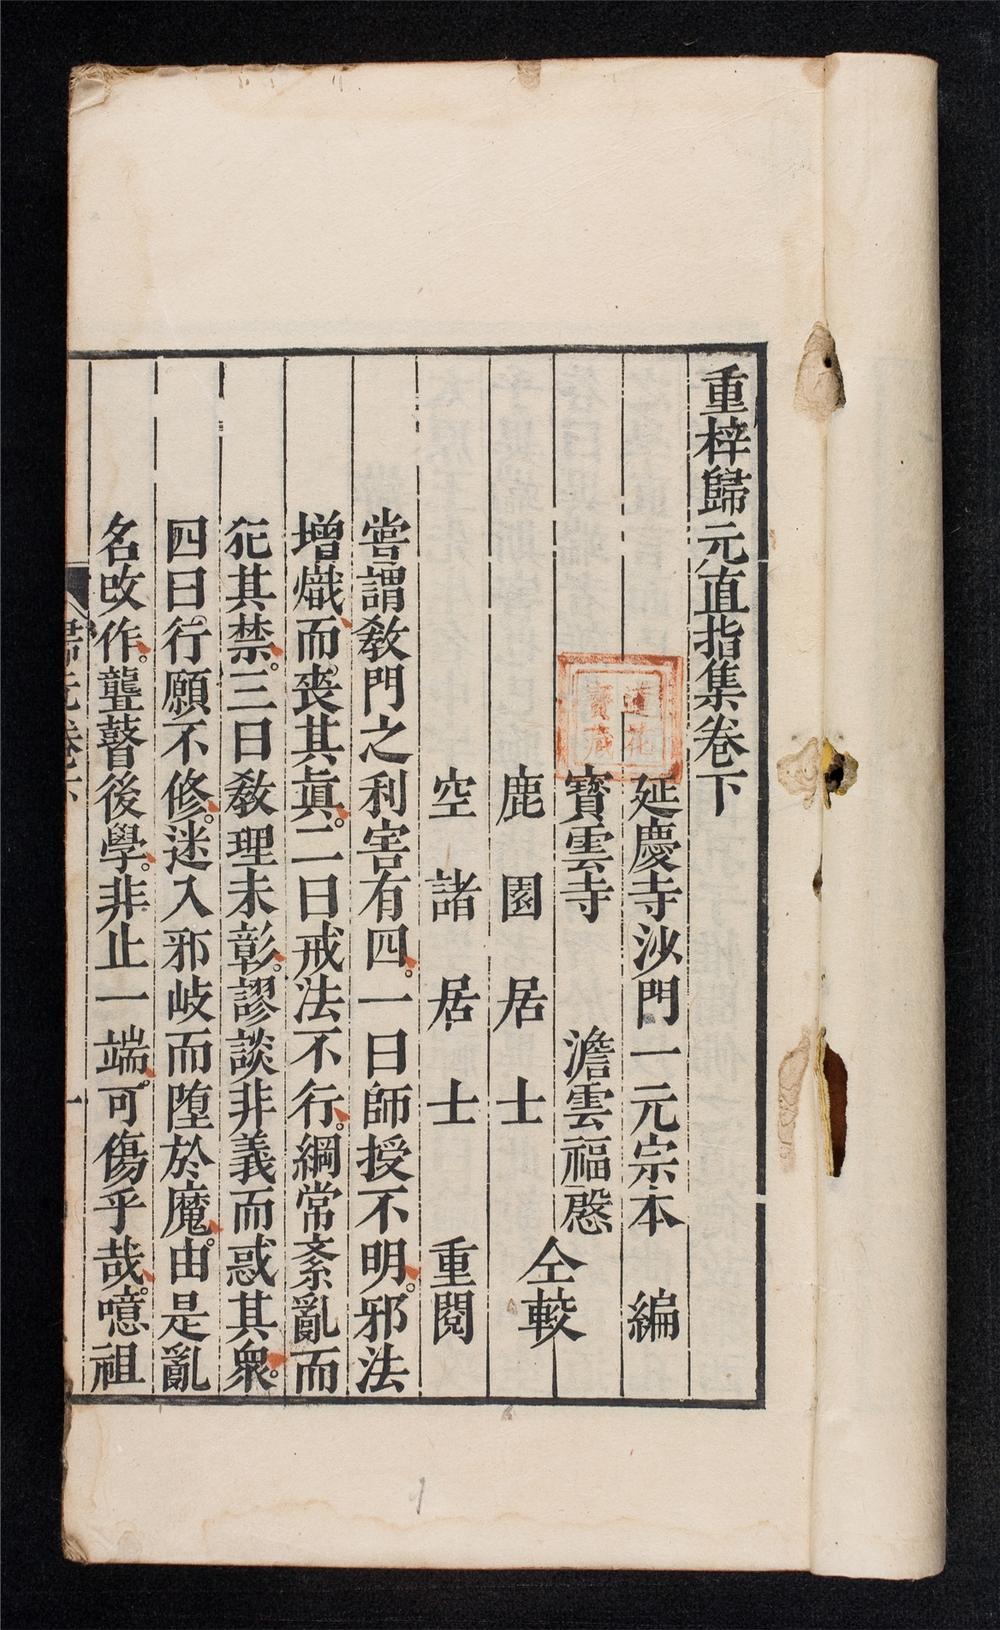 重梓歸元直指集卷下
延慶寺沙門一元宗本　編
寶雲寺　澹雲福慇
仝較
鹿園居士
空諸居士　重閱
嘗謂教門之利害有四。一曰師授不明。邪法
增熾而喪其眞。二曰戒法不行。綱常紊亂而
犯其禁。三曰教理未彰。謬談非義而惑其衆。
四曰。行願不修。迷入邪岐而墮於魔。由是亂
名改作。聾瞽後學。非止一端。可傷乎哉。噫祖
歸元卷下
一
蓮花
寶藏